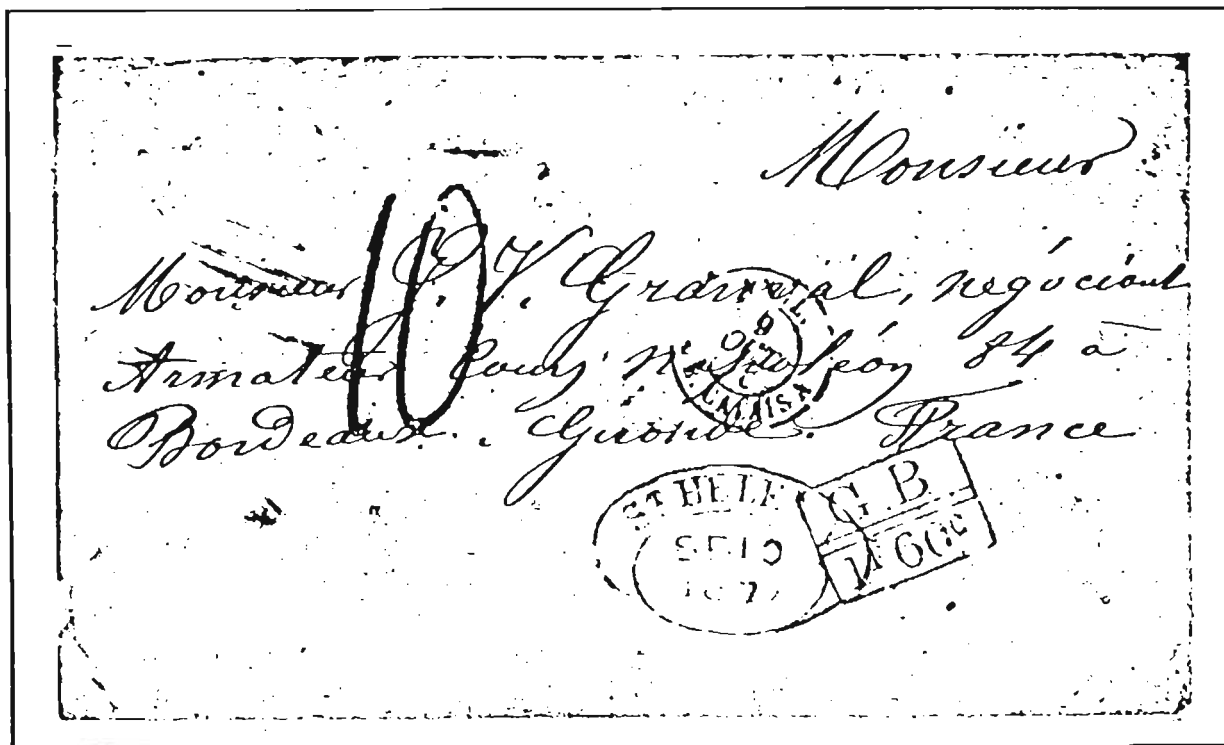 Monsieur
10
Monsieur J. V. Grangeal, négociant
Armateur Cours Napoléon 84 à
Bordeaux. Gironde. France
CALAIS
ST HELE
G.B
1F 60c